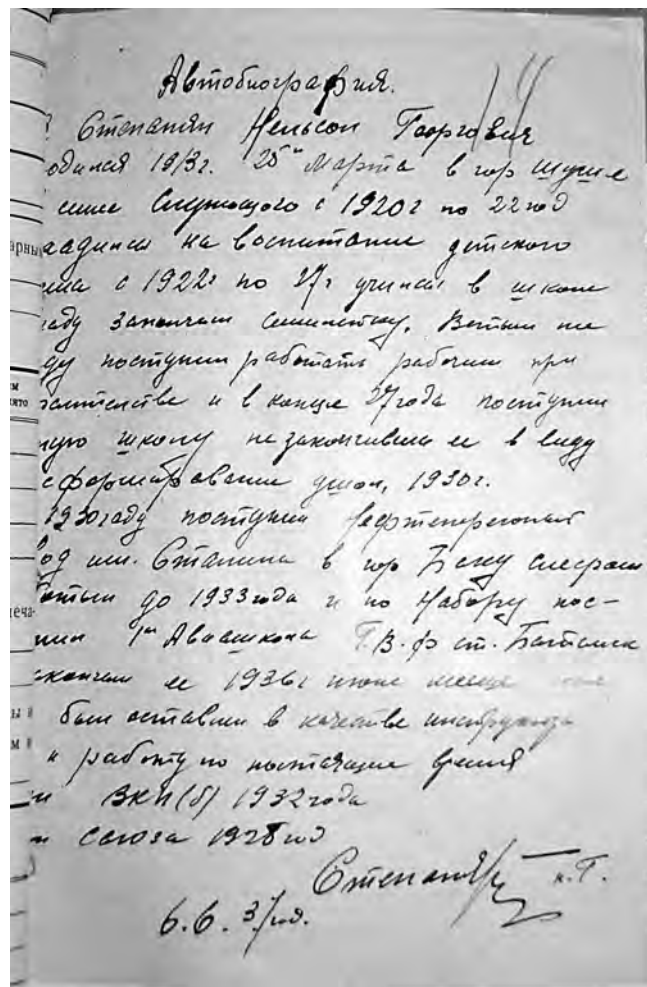 Автобиография.
Степанян Нельсон Георгович
одился 1913г. 25го Марта в гор Шуше
семье Служущего с 1920г по 22 год
аадился на воспитание детского
ома с 1922г по 27г учился в школе
году закончил семилетку. Вэтым же
ду поступил работать рабочим при
и в конце 27года поступил
ную школу незакончивши ее в виду
сформирование 1930г.
1930году поступил Нефтеперегоный
од им. Сталина в гор Баку слесарем
ботыл до 1933года и по Набору пос-
пил 1ая Авиашкола Г.В.Ф ст. Батайск
акончил ее 1936г июне месяце
был оставлен в качестве инструктора
и работу по настоящие время
н ВКП(б) 1932года
н союза 1928год
Степанян н.Г.
6.6.37год.
арных
ято
еча-
ы
м